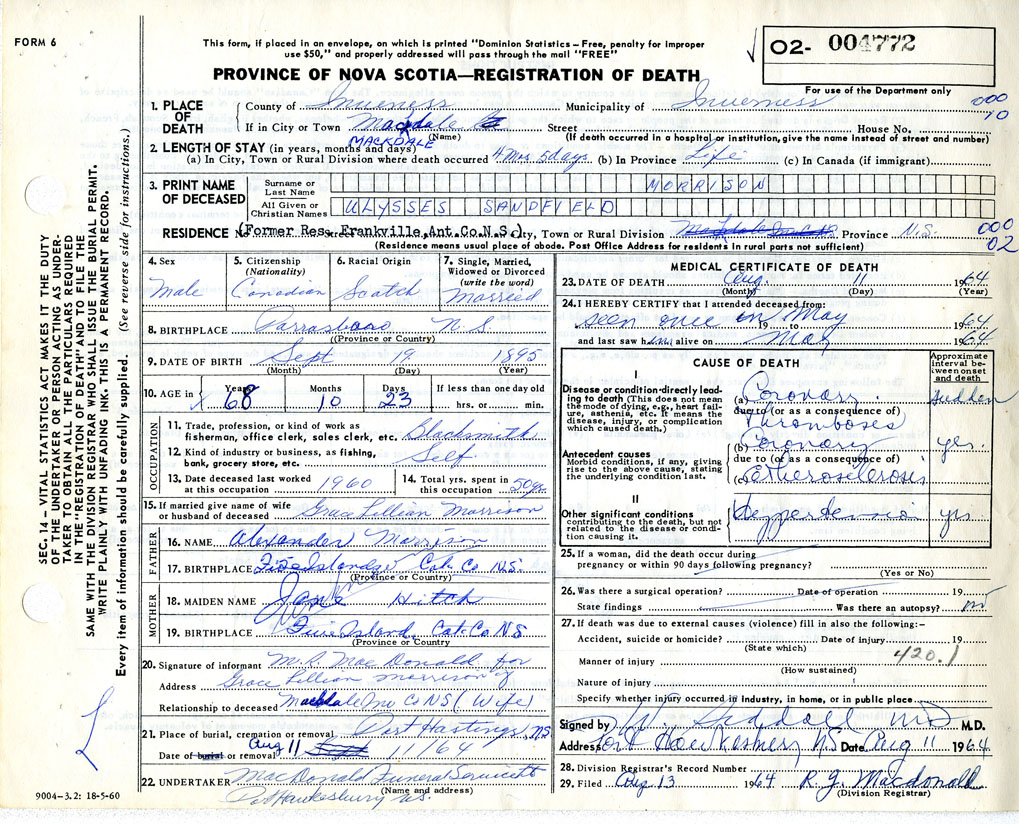 FORM 6
This form, if placed in an envelope, on which is printed "Dominion Statistics – Free, penalty for improper
use $50," and properly addressed will pass through the mail "FREE"
PROVINCE OF NOVA SCOTIA—REGISTRATION OF DEATH
O2- 004772
For use of the Department only
SEC. 14.—VITAL STATISTICS ACT MAKES IT THE DUTY
OF THE UNDERTAKER OR PERSON ACTING AS UNDER-
TAKER TO OBTAIN ALL THE PARTICULARS REQUIRED
IN THE "REGISTRATION OF DEATH" AND TO FILE THE
SAME WITH THE DIVISION REGISTRAR WHO SHALL ISSUE THE BURIAL PERMIT.
WRITE PLAINLY WITH UNFADING INK. THIS IS A PERMANENT RECORD.
Every item of information should be carefully supplied (See reverse side for instructions.)
1. PLACE OF DEATH
County of Inverness Municipality of Inverness
000
10
If in City or Town Mackdale Street House No.
(Name) (If death occurred in a hospital or institution, give the name instead of street and number)
MACKDALE
2. LENGTH OF STAY (in years, months and days)
(a) In City, Town or Rural Division where death occurred 4 Mos. 5 days (b) In Province Life (c) In Canada (if immigrant)
3. PRINT NAME OF DECEASED
Surname or Last Name MORRISON
All Given or Christian Names ULYSSES SANDFIELD
RESIDENCE (Former Res. Frankville, Ant. Co. N.S.) City, Town or Rural Division Province N.S.
000
02
(Residence means usual place of abode. Post Office Address for residents in rural parts not sufficient)
4. Sex Male
5. Citizenship (Nationality) Canadian
6. Racial Origin Scotch
7. Single, Married, Widowed or Divorced (write the word) Married
8. BIRTHPLACE Parrasboro N.S.
(Province or Country)
9. DATE OF BIRTH Sept 19 1895
(Month) (Day) (Year)
10. AGE in Years 68 Months 10 Days 23 If less than one day old hrs. or min.
OCCUPATION
11. Trade, profession, or kind of work as
fisherman, office clerk, sales clerk, etc. Blacksmith
12. Kind of industry or business, as fishing,
bank, grocery store, etc. Self
13. Date deceased last worked at this occupation 1960
14. Total yrs. spent in this occupation 50 yrs
15. If married give name of wife
or husband of deceased Grace Lillian Morrison
FATHER
16. NAME Alexander Morrison
17. BIRTHPLACE Co N.S.
(Province or Country)
MOTHER
18. MAIDEN NAME Jane Hitch
19. BIRTHPLACE Island, Co. N.S
(Province or Country)
20. Signature of informant M. R. MacDonald for
Address Grace Lillian Morrison
Relationship to deceased Mackdale Inv Co NS (Wife)
21. Place of burial, cremation or removal Port Hastings, N.S.
Date of burial or removal Aug 11 11/64
22. UNDERTAKER MacDonald Funeral Service
(Name and address)
Pt Hawkesbury N.S.
9004–3.2: 18-5-60
MEDICAL CERTIFICATE OF DEATH
23. DATE OF DEATH Aug. 11 1964
(Month) (Day) (Year)
24. I HEREBY CERTIFY that I attended deceased from:
seen once in May 19 to 1964
and last saw him alive on May 1964
CAUSE OF DEATH
Approximate interval between onset and death
I
Disease or condition directly leading to death (This does not mean the mode of dying, e.g., heart failure, asthenia, etc. It means the disease, injury, or complication which caused death.)
(a) Coronary Sudden
due to (or as a consequence of)
Thromboses
Antecedent causes
Morbid conditions, if any, giving rise to the above cause, stating the underlying condition last.
(b) Coronary yes.
due to (or as a consequence of)
(c) Artherosclerosis
II
Other significant conditions
contributing to the death, but not related to the disease or condition causing it.
Hyppertension yes
25. If a woman, did the death occur during
pregnancy or within 90 days following pregnancy?
(Yes or No)
26. Was there a surgical operation? Date of operation 19
State findings Was there an autopsy? no
27. If death was due to external causes (violence) fill in also the following:–
Accident, suicide or homicide? Date of injury 19
(State which)
420.1
Manner of injury
(How sustained)
Nature of injury
Specify whether injury occurred in industry, in home, or in public place
Signed by MD M.D.
Address Port Hawkesbury NS Date Aug 11 1964
28. Division Registrar's Record Number
29. Filed Aug 13 1964 R. J. Macdonald
(Division Registrar)